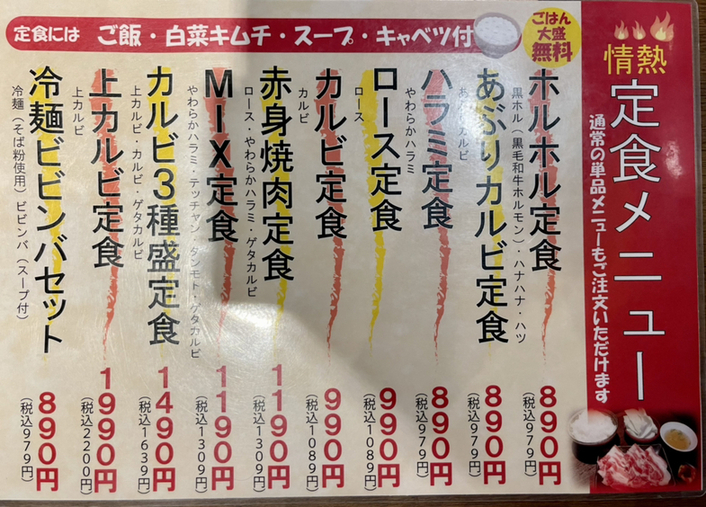 情熱
定食メニュー
通常の単品メニューもご注文いただけます
ごはん
大盛
無料
定食には ご飯・白菜キムチ・スープ・キャベツ付
ホルホル定食
黒ホル（黒毛和牛ホルモン）・ハナハナ・ハツ
890円
(税込979円)
あぶりカルビ定食
あぶりカルビ
890円
(税込979円)
ハラミ定食
やわらかハラミ
890円
(税込979円)
ロース定食
ロース
990円
(税込1089円)
カルビ定食
カルビ
990円
(税込1089円)
赤身焼肉定食
ロース・やわらかハラミ・ゲタカルビ
1190円
(税込1309円)
MIX定食
やわらかハラミ・テッチャン・タンモト・ゲタカルビ
1190円
(税込1309円)
カルビ3種盛定食
上カルビ・カルビ・ゲタカルビ
1490円
(税込1639円)
上カルビ定食
上カルビ
1990円
(税込2200円)
冷麺ビビンバセット
冷麺（そば粉使用）ビビンバ（スープ付）
890円
(税込979円)